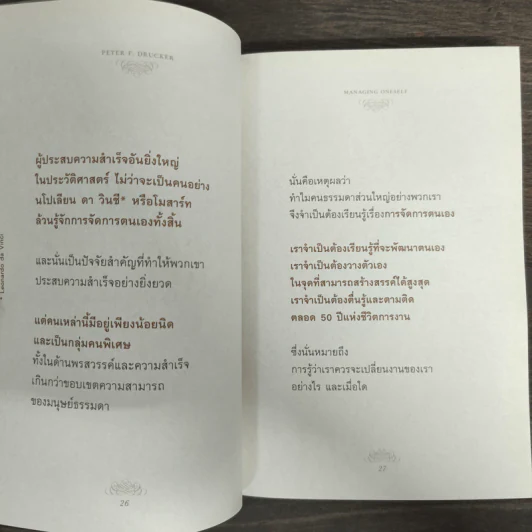 PETER F. DRUCKER
ผู้ประสบความสำเร็จอันยิ่งใหญ่
ในประวัติศาสตร์ ไม่ว่าจะเป็นคนอย่าง
นโปเลียน ดา วินชี* หรือโมสาร์ท
ล้วนรู้จักการจัดการตนเองทั้งสิ้น
และนั่นเป็นปัจจัยสำคัญที่ทำให้พวกเขา
ประสบความสำเร็จอย่างยิ่งยวด
แต่คนเหล่านี้มีอยู่เพียงน้อยนิด
และเป็นกลุ่มคนพิเศษ
ทั้งในด้านพรสวรรค์และความสำเร็จ
เกินกว่าขอบเขตความสามารถ
ของมนุษย์ธรรมดา
* Leonardo da Vinci
26
MANAGING ONESELF
นั่นคือเหตุผลว่า
ทำไมคนธรรมดาส่วนใหญ่อย่างพวกเรา
จึงจำเป็นต้องเรียนรู้เรื่องการจัดการตนเอง
เราจำเป็นต้องเรียนรู้ที่จะพัฒนาตนเอง
เราจำเป็นต้องวางตัวเอง
ในจุดที่สามารถสร้างสรรค์ได้สูงสุด
เราจำเป็นต้องตื่นรู้และตามติด
ตลอด 50 ปีแห่งชีวิตการงาน
ซึ่งนั่นหมายถึง
การรู้ว่าเราควรจะเปลี่ยนงานของเรา
อย่างไร และเมื่อใด
27